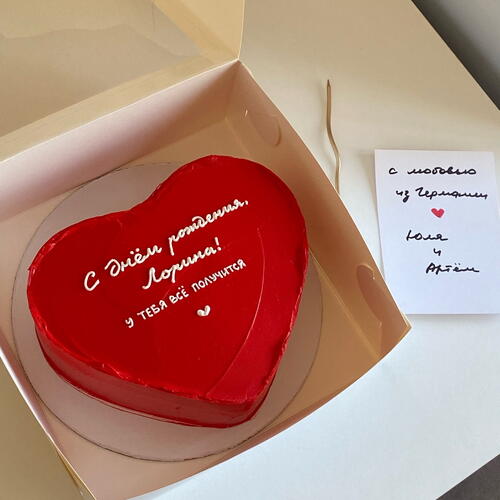 С Днём рождения,
Лорина!
У ТЕБЯ ВСЁ ПОЛУЧИТСЯ
с любовью
из Германии
Юля
и
Артём